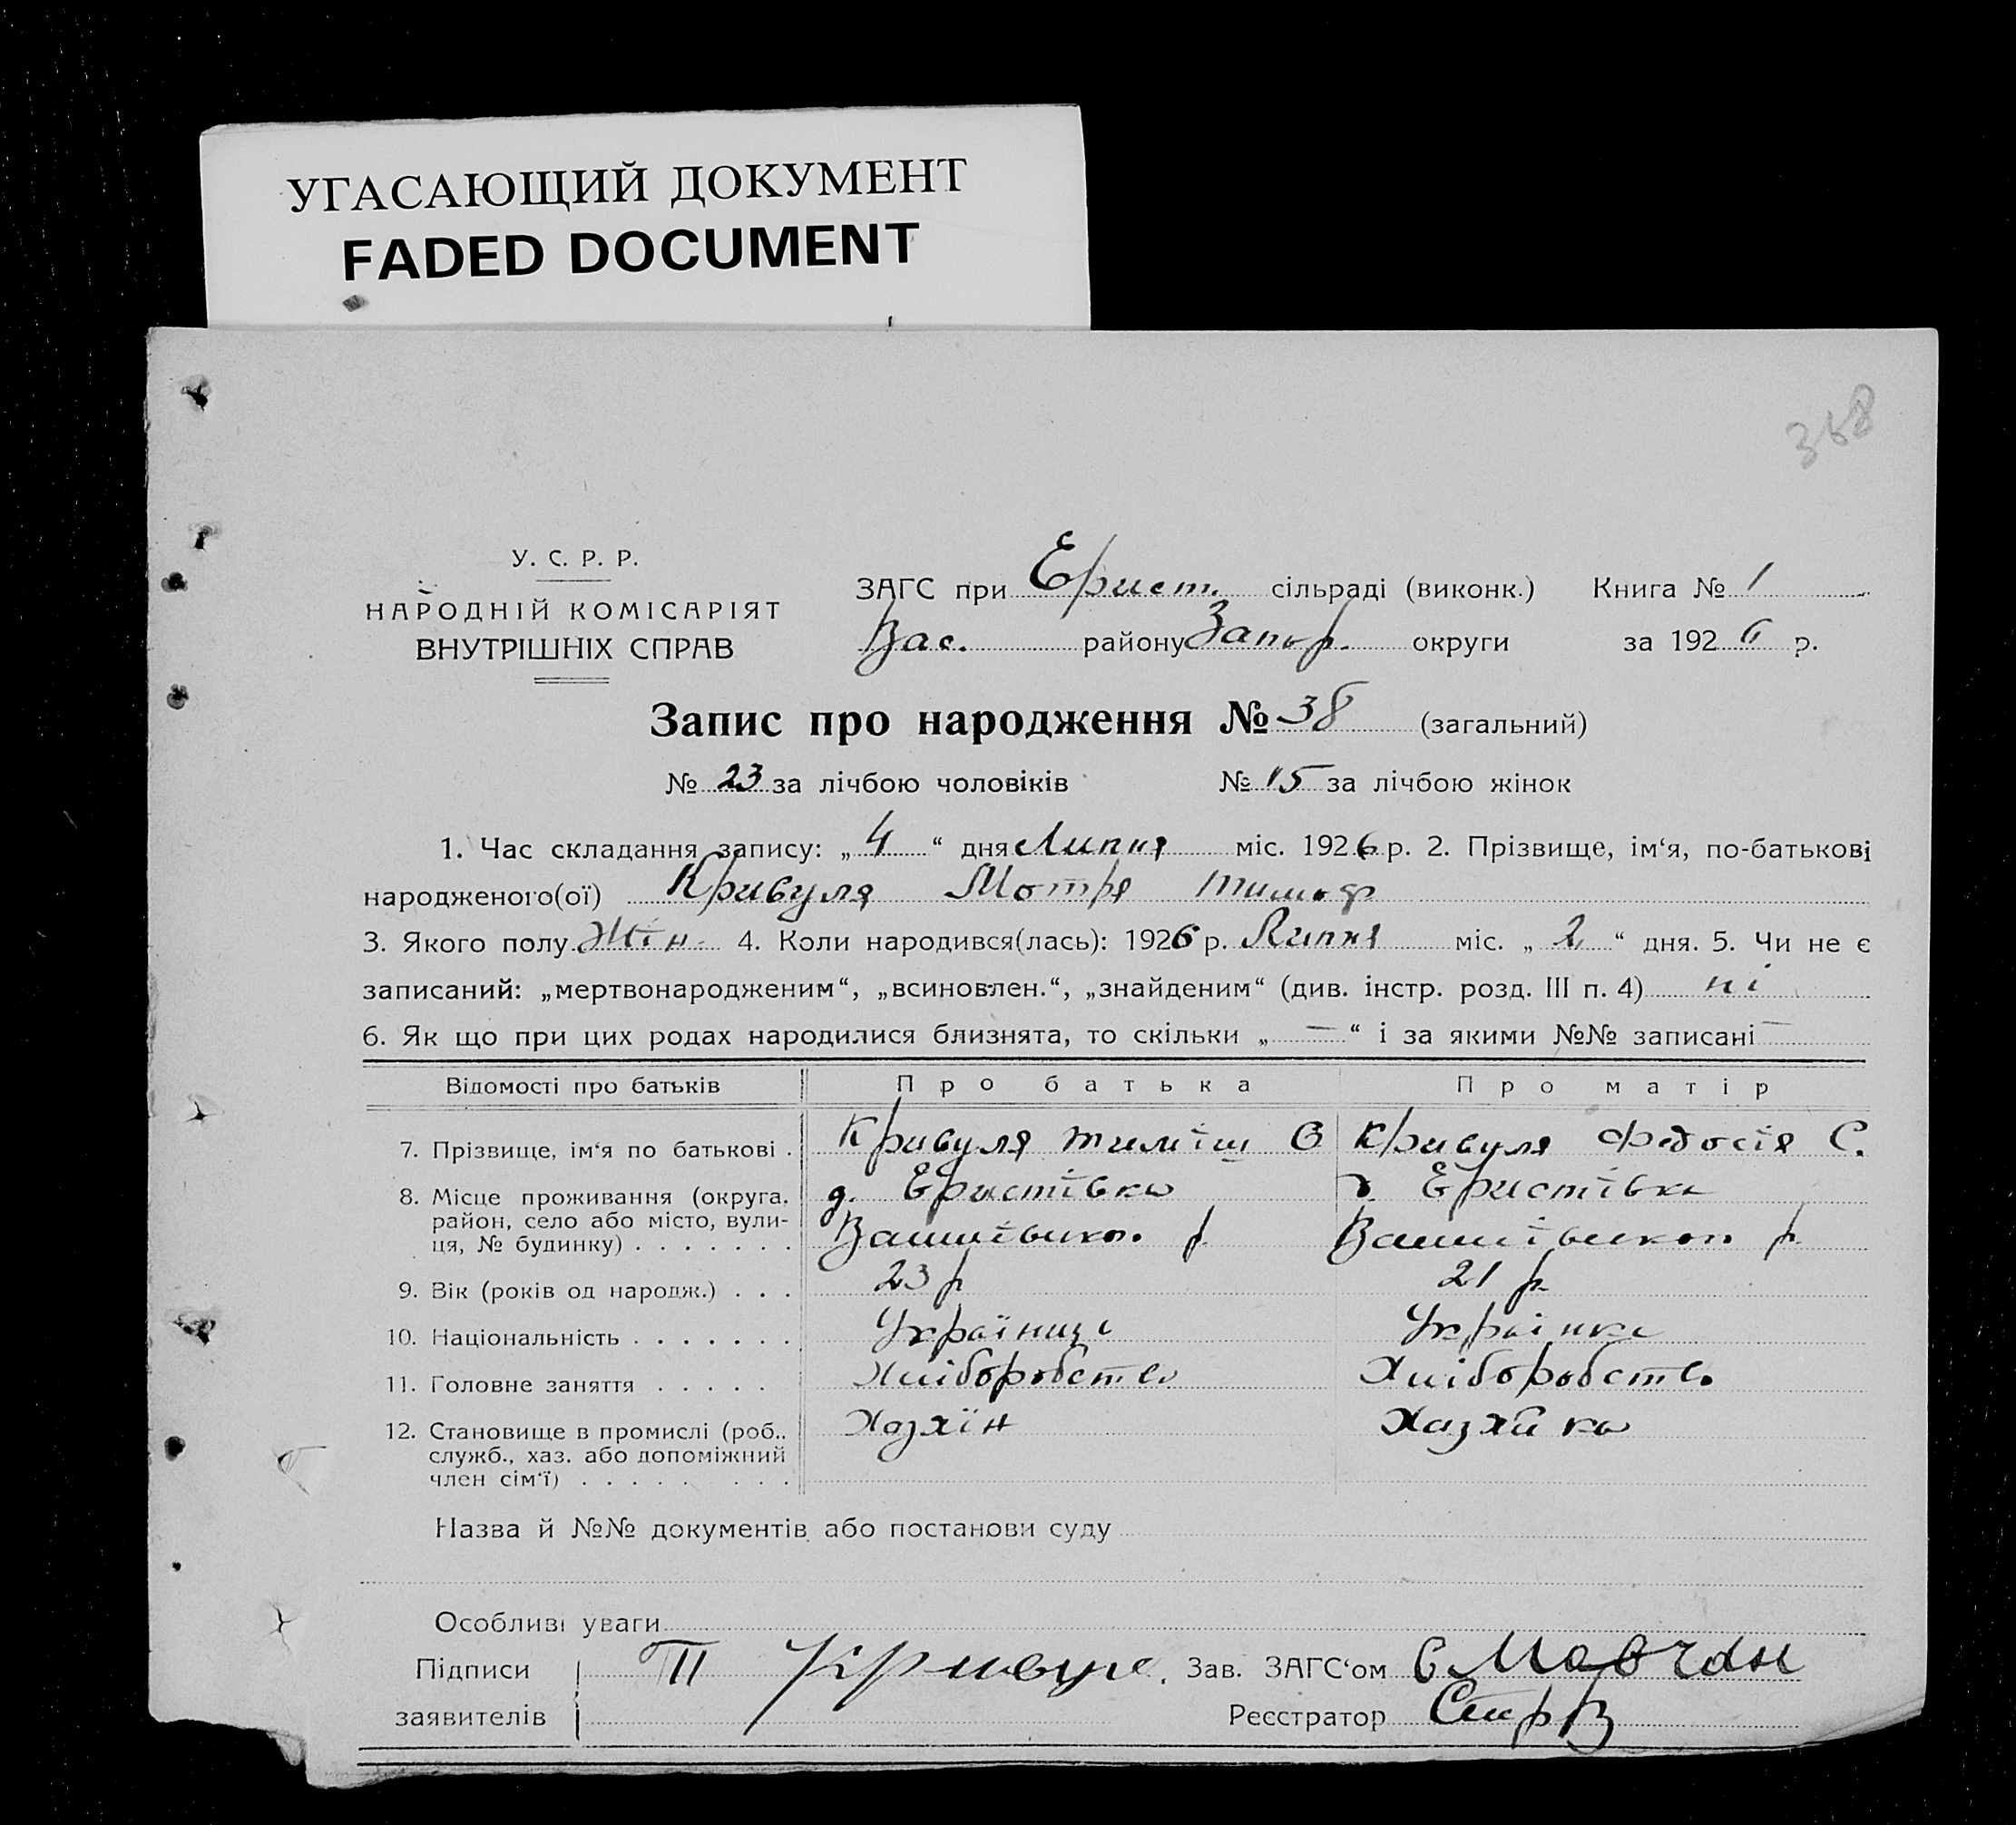 УГАСАЮЩИЙ ДОКУМЕНТ
FADED DOCUMENT
368
У. С. Р. Р.
НАРОДНІЙ КОМІСАРІЯТ
ВНУТРІШНІХ СПРАВ
ЗАГС при Ерист. сільраді (виконк.) Книга № 1
Вас. району Запор. округи за 1926 р.
Запис про народження № 38 (загальний)
№ 23 за лічбою чоловіків № 15 за лічбою жінок
1. Час складання запису: „4“ дня Липня міс. 1926 р. 2. Прізвище, ім‘я, по-батькові
народженого(ої) Кривуля Мотря Тимоф
3. Якого полу Жін. 4. Коли народився(лась): 1926 р. Липня міс. „2“ дня. 5. Чи не є
записаний: „мертвонародженим“, „всиновлен.“, „знайденим“ (див. інстр. розд. III п. 4) ні
6. Як що при цих родах народилися близнята, то скільки „—“ і за якими №№ записані —
Відомості про батьків Про батька Про матір
7. Прізвище, ім‘я по батькові . Кривуля Тиміш О Кривуля Федосія С.
8. Місце проживання (округа, район, село або місто, вулиця, № будинку) . . . . . . . д. Еристівка д. Еристівка
р р
9. Вік (років од народж.) . . . 23 р 21 р
10. Національність . . . . . . . Українец Українка
11. Головне заняття . . . . . Хліборобств. Хліборобств.
12. Становище в промислі (роб.. служб., хаз. або допоміжний член сім‘ї) . . . . . . . . Хазяїн Хазяйка
Назва й №№ документів або постанови суду
Особливі уваги
Підписи заявителів Зав. ЗАГС‘ом Мовчан
Реєстратор